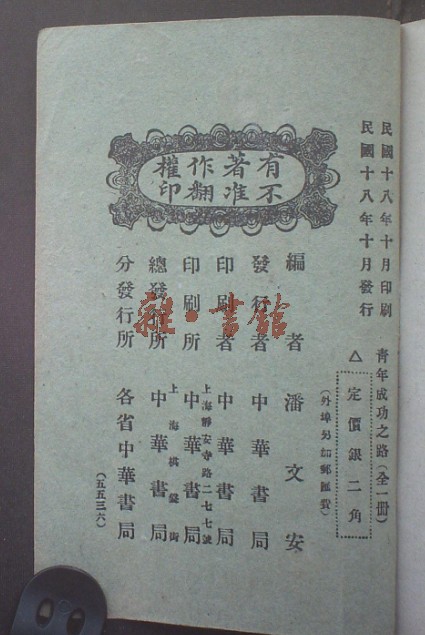 民國十八年十月印刷
民國十八年十月發行
青年成功之路（全一冊）
△定價銀二角
（外埠另加郵匯費）
有著作權
不准翻印
編者 潘文安
發行者 中華書局
印刷者 中華書局
上海靜安寺路二七七號
印刷所 中華書局
上海棋盤街
總發行所 中華書局
分發行所 各省中華書局
（五五三六）
雜·書館